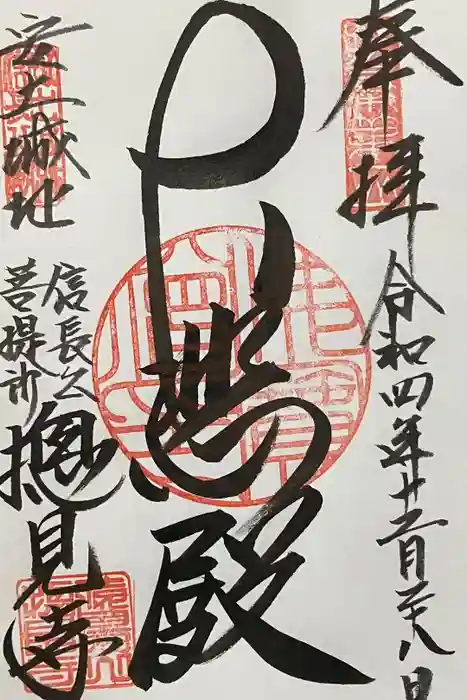 奉拝 令和四年十二月廿八日
大悲殿
安土城址
信長公
菩提所
摠見寺